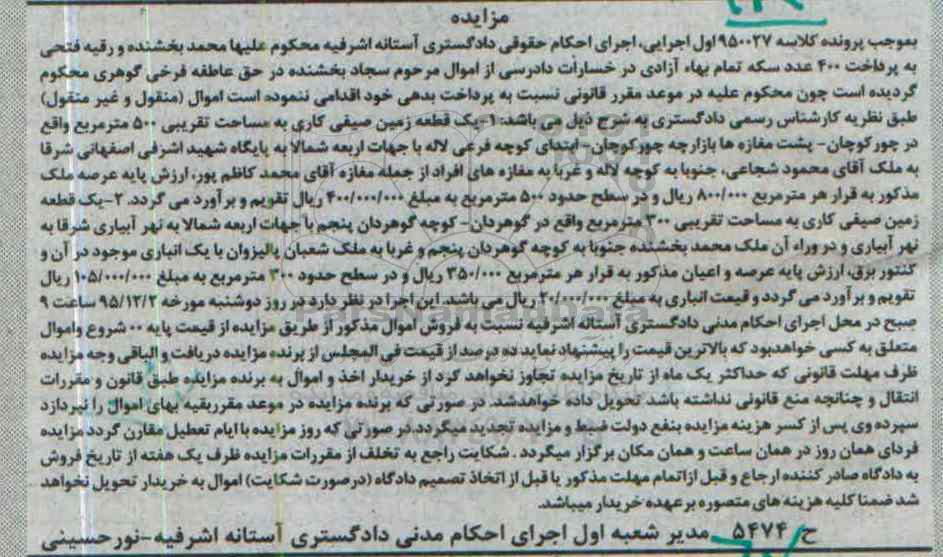 مزایده
بموجب پرونده کلاسه ۹۵۰۰۲۷ اول اجرایی، اجرای احکام حقوقی دادگستری آستانه اشرفیه محکوم علیها محمد بخشنده و رقیه فتحی
به پرداخت ۴۰۰ عدد سکه تمام بهاء آزادی در خسارات دادرسی از اموال مرحوم سجاد بخشنده در حق عاطفه فرخی گوهری محکوم
گردیده است چون محکوم علیه در موعد مقرر قانونی نسبت به پرداخت بدهی خود اقدامی ننموده است اموال (منقول و غیر منقول)
طبق نظریه کارشناس رسمی دادگستری به شرح ذیل می باشد: ۱-یک قطعه زمین صیفی کاری به مساحت تقریبی ۵۰۰ مترمربع واقع
در چورکوچان- پشت مغازه ها بازارچه چورکوچان- ابتدای کوچه فرعی لاله با جهات اربعه شمالا به پایگاه شهید اشرفی اصفهانی شرقا
به ملک آقای محمود شجاعی، جنوبا به کوچه لاله و غربا به مغازه های افراد از جمله مغازه آقای محمد کاظم پور، ارزش پایه عرصه ملک
مذکور به قرار هر مترمربع ۸۰۰/۰۰۰ ریال و در سطح حدود ۵۰۰ مترمربع به مبلغ ۴۰۰/۰۰۰/۰۰۰ ریال تقویم و برآورد می گردد. ۲-یک قطعه
زمین صیفی کاری به مساحت تقریبی ۳۰۰ مترمربع واقع در گوهردان- کوچه گوهردان پنجم با جهات اربعه شمالا به نهر آبیاری شرقا به
نهر آبیاری و در وراء آن ملک محمد بخشنده جنوبا به کوچه گوهردان پنجم و غربا به ملک شعبان پالیزوان با یک انباری موجود در آن و
کنتور برق، ارزش پایه عرصه و اعیان مذکور به قرار هر مترمربع ۳۵۰/۰۰۰ ریال و در سطح حدود ۳۰۰ مترمربع به مبلغ ۱۰۵/۰۰۰/۰۰۰ ریال
تقویم و برآورد می گردد و قیمت انباری به مبلغ ۲۰/۰۰۰/۰۰۰ ریال می باشد. این اجرا در نظر دارد در روز دوشنبه مورخه ۹۵/۱۲/۲ ساعت ۹
صبح در محل اجرای احکام مدنی دادگستری آستانه اشرفیه نسبت به فروش اموال مذکور از طریق مزایده از قیمت پایه ۰۰ شروع واموال
متعلق به کسی خواهدبود که بالاترین قیمت را پیشنهاد نماید ده درصد از قیمت فی المجلس از برنده مزایده دریافت و الباقی وجه مزایده
ظرف مهلت قانونی که حداکثر یک ماه از تاریخ مزایده تجاوز نخواهد کرد از خریدار اخذ و اموال به برنده مزایده طبق قانون و مقررات
انتقال و چنانچه منع قانونی نداشته باشد تحویل داده خواهدشد. در صورتی که برنده مزایده در موعد مقرربقیه بهای اموال را نپردازد
سپرده وی پس از کسر هزینه مزایده بنفع دولت ضبط و مزایده تجدید میگردد.در صورتی که روز مزایده با ایام تعطیل مقارن گردد مزایده
فردای همان روز در همان ساعت و همان مکان برگزار میگردد . شکایت راجع به تخلف از مقررات مزایده ظرف یک هفته از تاریخ فروش
به دادگاه صادر کننده ارجاع و قبل ازاتمام مهلت مذکور یا قبل از اتخاذ تصمیم دادگاه (درصورت شکایت) اموال به خریدار تحویل نخواهد
شد ضمنا کلیه هزینه های متصوره برعهده خریدار میباشد.
ح/ ۵۴۷۴ مدیر شعبه اول اجرای احکام مدنی دادگستری آستانه اشرفیه-نورحسینی